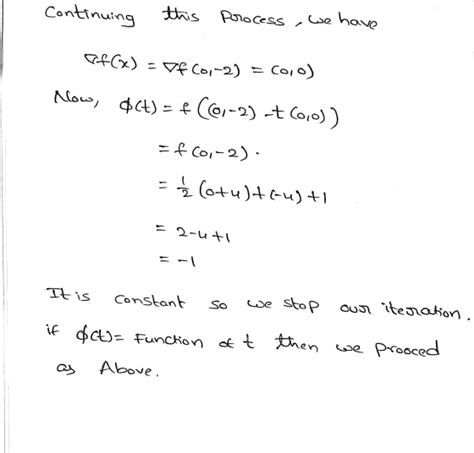 Continuing this Process, we have
∇f(x) = ∇f(0,-2) = (0,0)
Now, ϕ(t) = f((0,-2) - t(0,0))
= f(0,-2).
= 1/2 (0+4)+(-4)+1
= 2-4+1
= -1
It is constant so we stop our iteration.
if ϕ(t)= Function of t then we prooced
as Above.